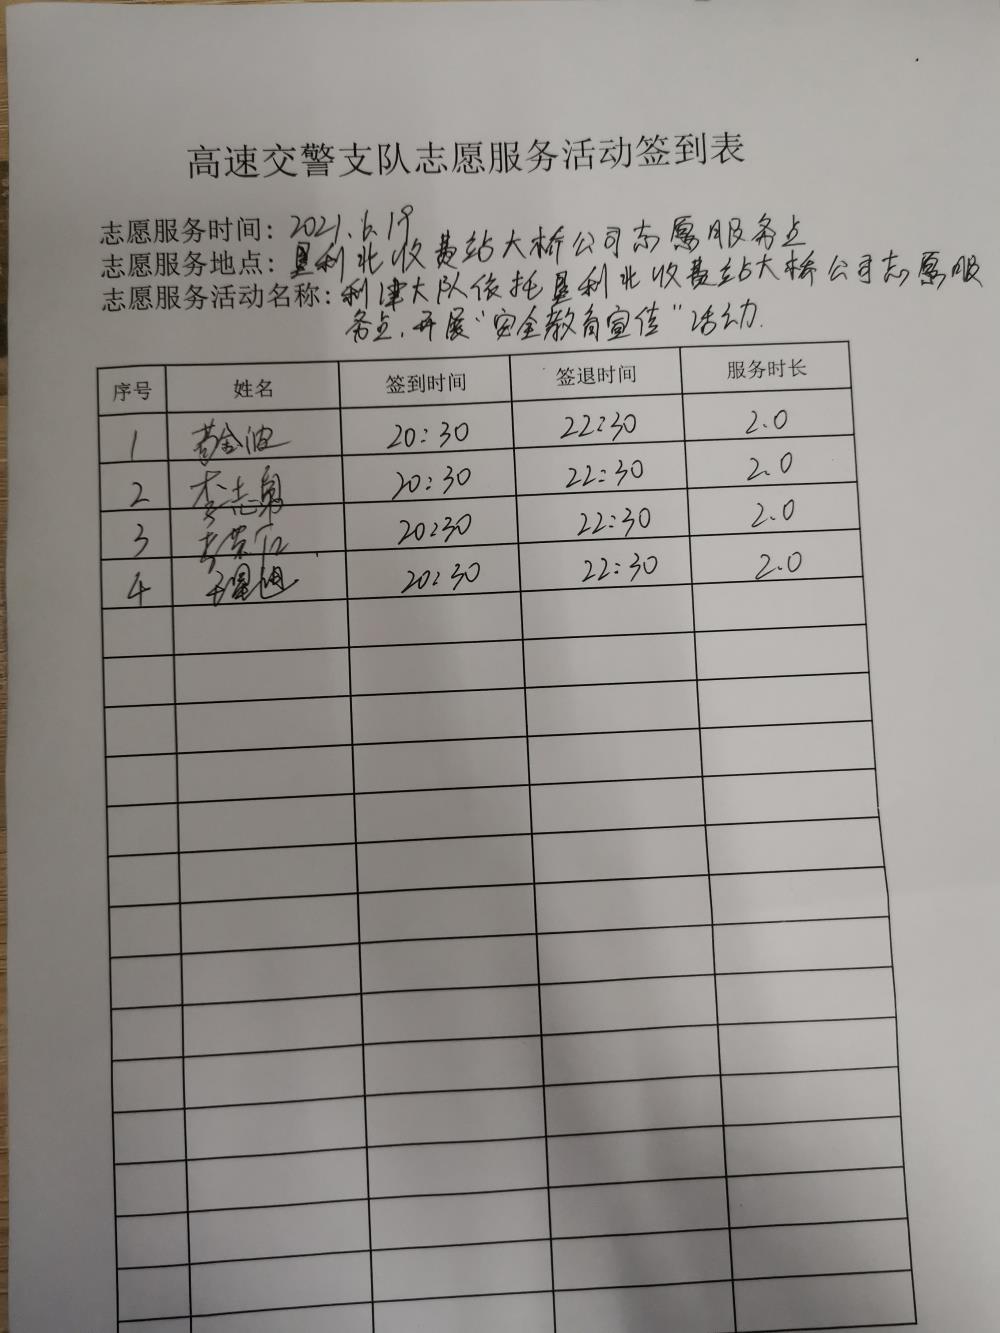 高速交警支队志愿服务活动签到表
志愿服务时间：2021.6.19
志愿服务地点：垦利北收费站大桥公司志愿服务点
志愿服务活动名称：利津大队依托垦利北收费站大桥公司志愿服
务点，开展“安全教育宣传”活动.
序号 姓名 签到时间 签退时间 服务时长
1 金波 20:30 22:30 2.0
2 李志勇 20:30 22:30 2.0
3 20:30 22:30 2.0
4 20:30 22:30 2.0